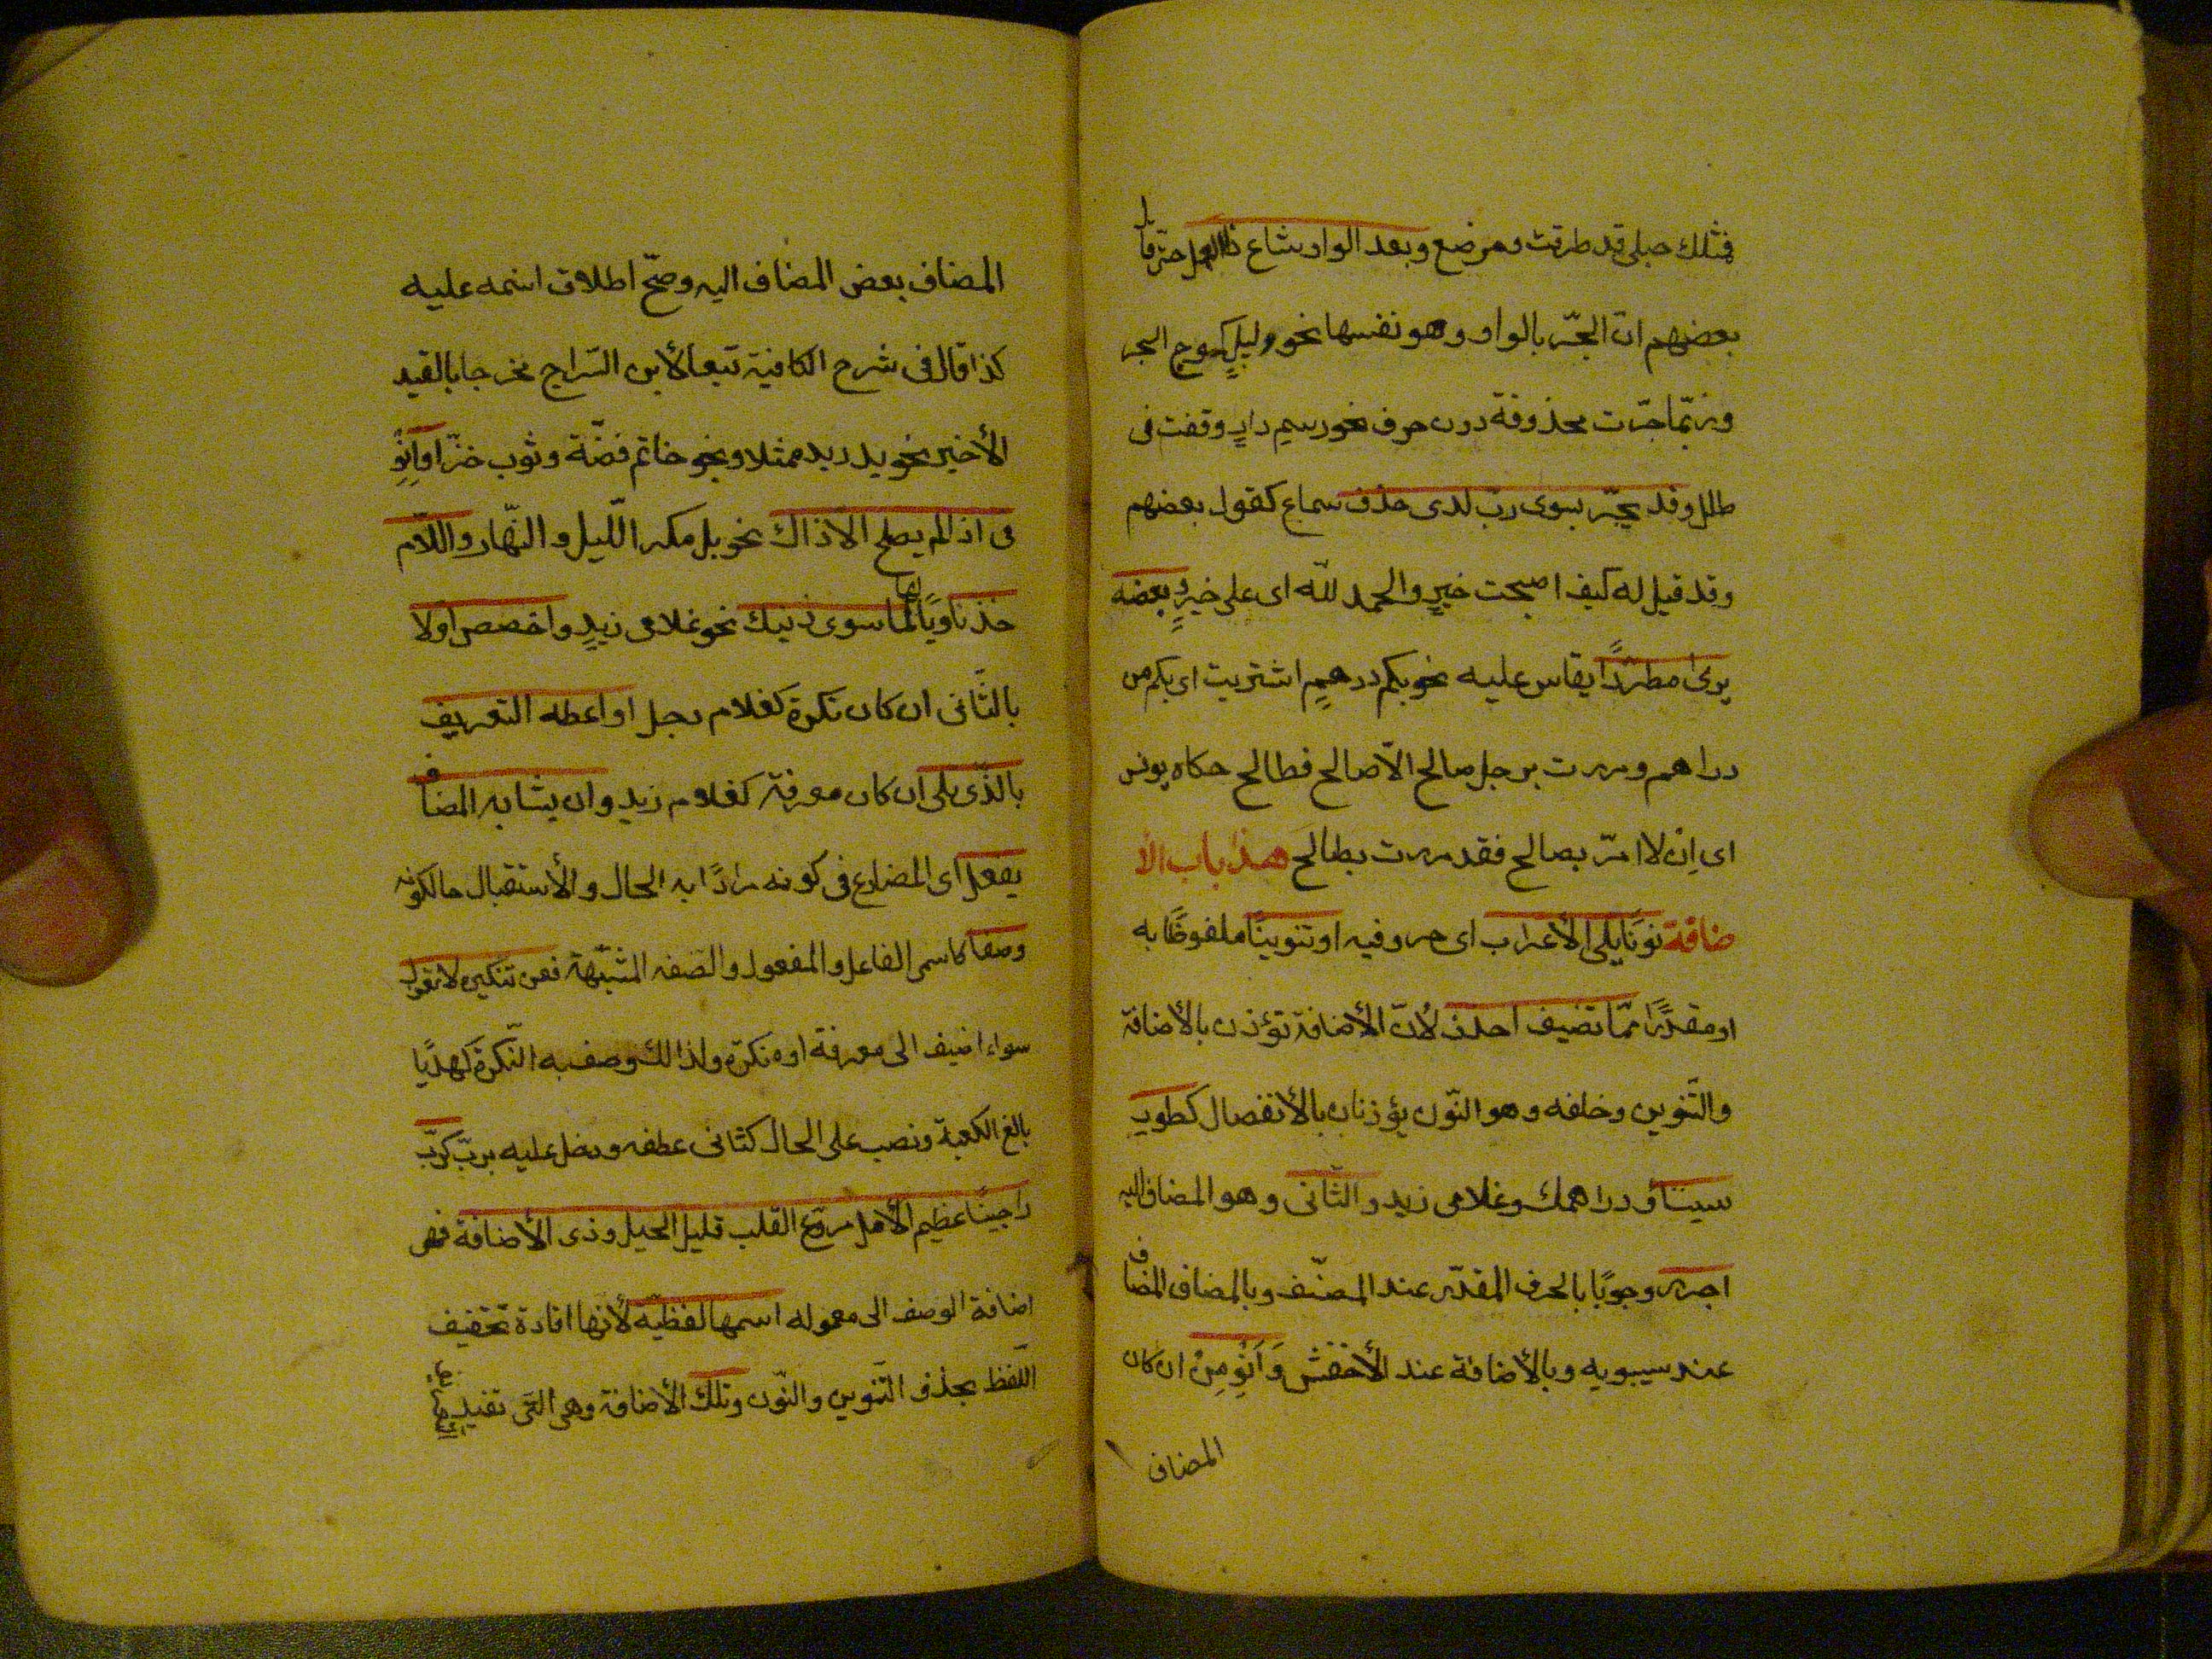 فمثلك حبلى قد طرقت ومرضع وبعد الواو شاع ذا العمل حتى قال
بعضهم ان الجرّ بالواو وهو نفسها نحو وليلٍ كموج البحر
وربّما جرّت محذوفة دون حرف نحو رسم دارٍ وقفت فى
طلل وقد يجرّ بسوى ربّ لدى حذف سماع كقول بعضهم
وقد قيل له كيف اصبحت خيرٍ والحمد للّه اى على خيرٍ وبعضه
يرى مطّردًا يقاس عليه نحو بكم درهمٍ اشتريت اى بكم من
دراهم ومررت برجل صالح الّا صالح فطالح حكاه يونس
اى اِن لا امرّ بصالح فقد مررت بطالح هذا باب الا
ضافة نونًا يلى الأعراب اى حروفيه او تنوينًا ملفوظًا به
او مقدّرًا ممّا تضيف احذف لأنّ الأضافة تؤذن بالأضافة
والتّنوين وخلفه وهو النّون يؤذنان بالأنفصال كطور
سينا و دراهمك وغلامى زيد والثّانى وهو المضاف اليه
اجرر وجوبًا بالحرف المقدّر عند المصنّف وبالمضاف المضاف
عند سيبويه وبالأضافة عند الأخفش وَاَنْوِ مِنْ ان كان
المضاف
المضاف بعض المضاف اليه وصحّ اطلاق اسمه عليه
كذا قال فى شرح الكافية تبعا لأبن السّراج مخرجا بالقيد
الأخير نحو يد زيد ممثلا ونحو خاتم فضّة وثوب خزّ او اَنْوِ
فى اذا لم يصلح الّا ذاك نحو بل مكر اللّيل والنّهار واللّام
خذ ناويًا لها لما سوى ذينك نحو غلامى زيدٍ واخصص اولا
بالثّانى ان كان نكرة كغلام رجل او اعطه التعريف
بالذّى يلى ان كان معرفة كغلام زيد وان يشابه المضاف
يفعل اى المضارع فى كونه مرادًا به الحال والأستقبال حالكونه
وصفا كاسمى الفاعل والمفعول والصّفه المشبّهة فعن تنكيره لا يعزل
سواء اضيف الى معرفة او نكرة ولذالك وصف به النّكرة كهديًا
بالغ الكعبة ونصب على الحال كثانى عطفه ودخل عليه بربّ كربّ
راجينا عظيم الأمل مروّع القلب قليل الحيل وذى الأضافة فهى
اضافة الوصف الى معموله اسمها لفظيّة لأنها افادة تخفيف
اللّفظ بحذف التّنوين والنّون وتلك الأضافة وهى التّى تفيد